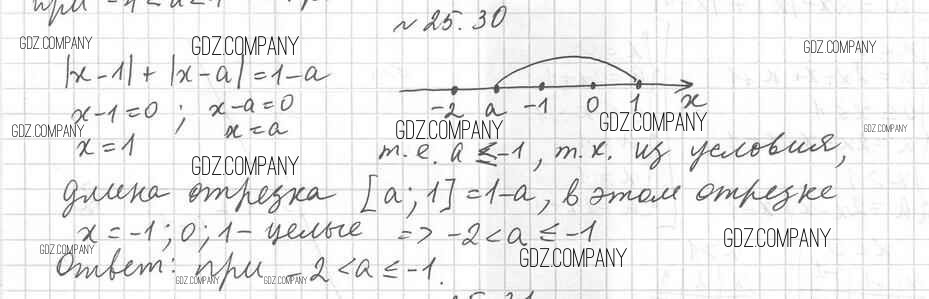 при -1 < a < 1
№25.30
GDZ.COMPANY GDZ.COMPANY GDZ.COMPANY
|x-1| + |x-a| = 1-a
x-1=0 ; x-a=0
-2 a -1 0 1 x
x=1 x=a
GDZ.COMPANY GDZ.COMPANY GDZ.COMPANY GDZ.COMPANY
т.е. a ≤ -1, т.к. из условия,
GDZ.COMPANY
длина отрезка [a; 1] = 1-a, в этом отрезке
x = -1; 0; 1 - целые => -2 < a ≤ -1
GDZ.COMPANY GDZ.COMPANY GDZ.COMPANY
Ответ: при -2 < a ≤ -1.
GDZ.COMPANY GDZ.COMPANY